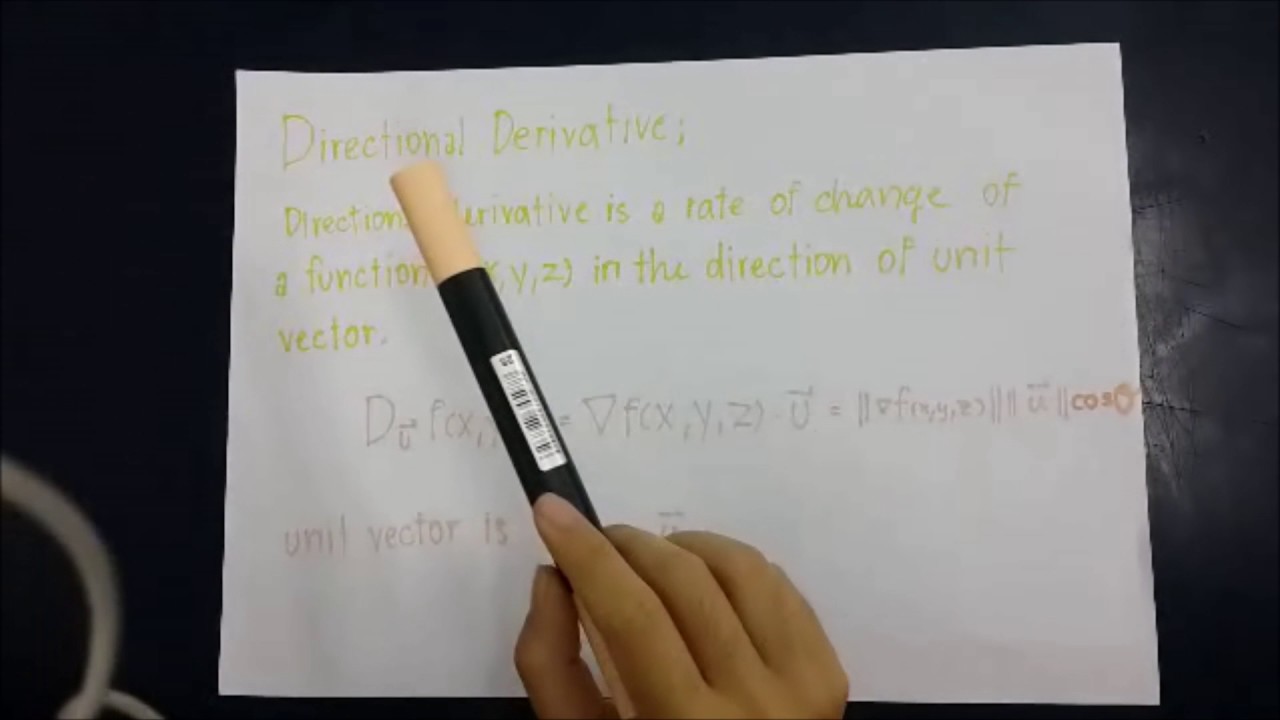 Directional Derivative;
Direction derivative is a rate of change of
a function x,y,z) in the direction of unit
vector.
D_u⃗ f(x, = ∇f(x,y,z) · u⃗ = ||∇f(x,y,z)|| || u⃗ || cosθ
unit vector is